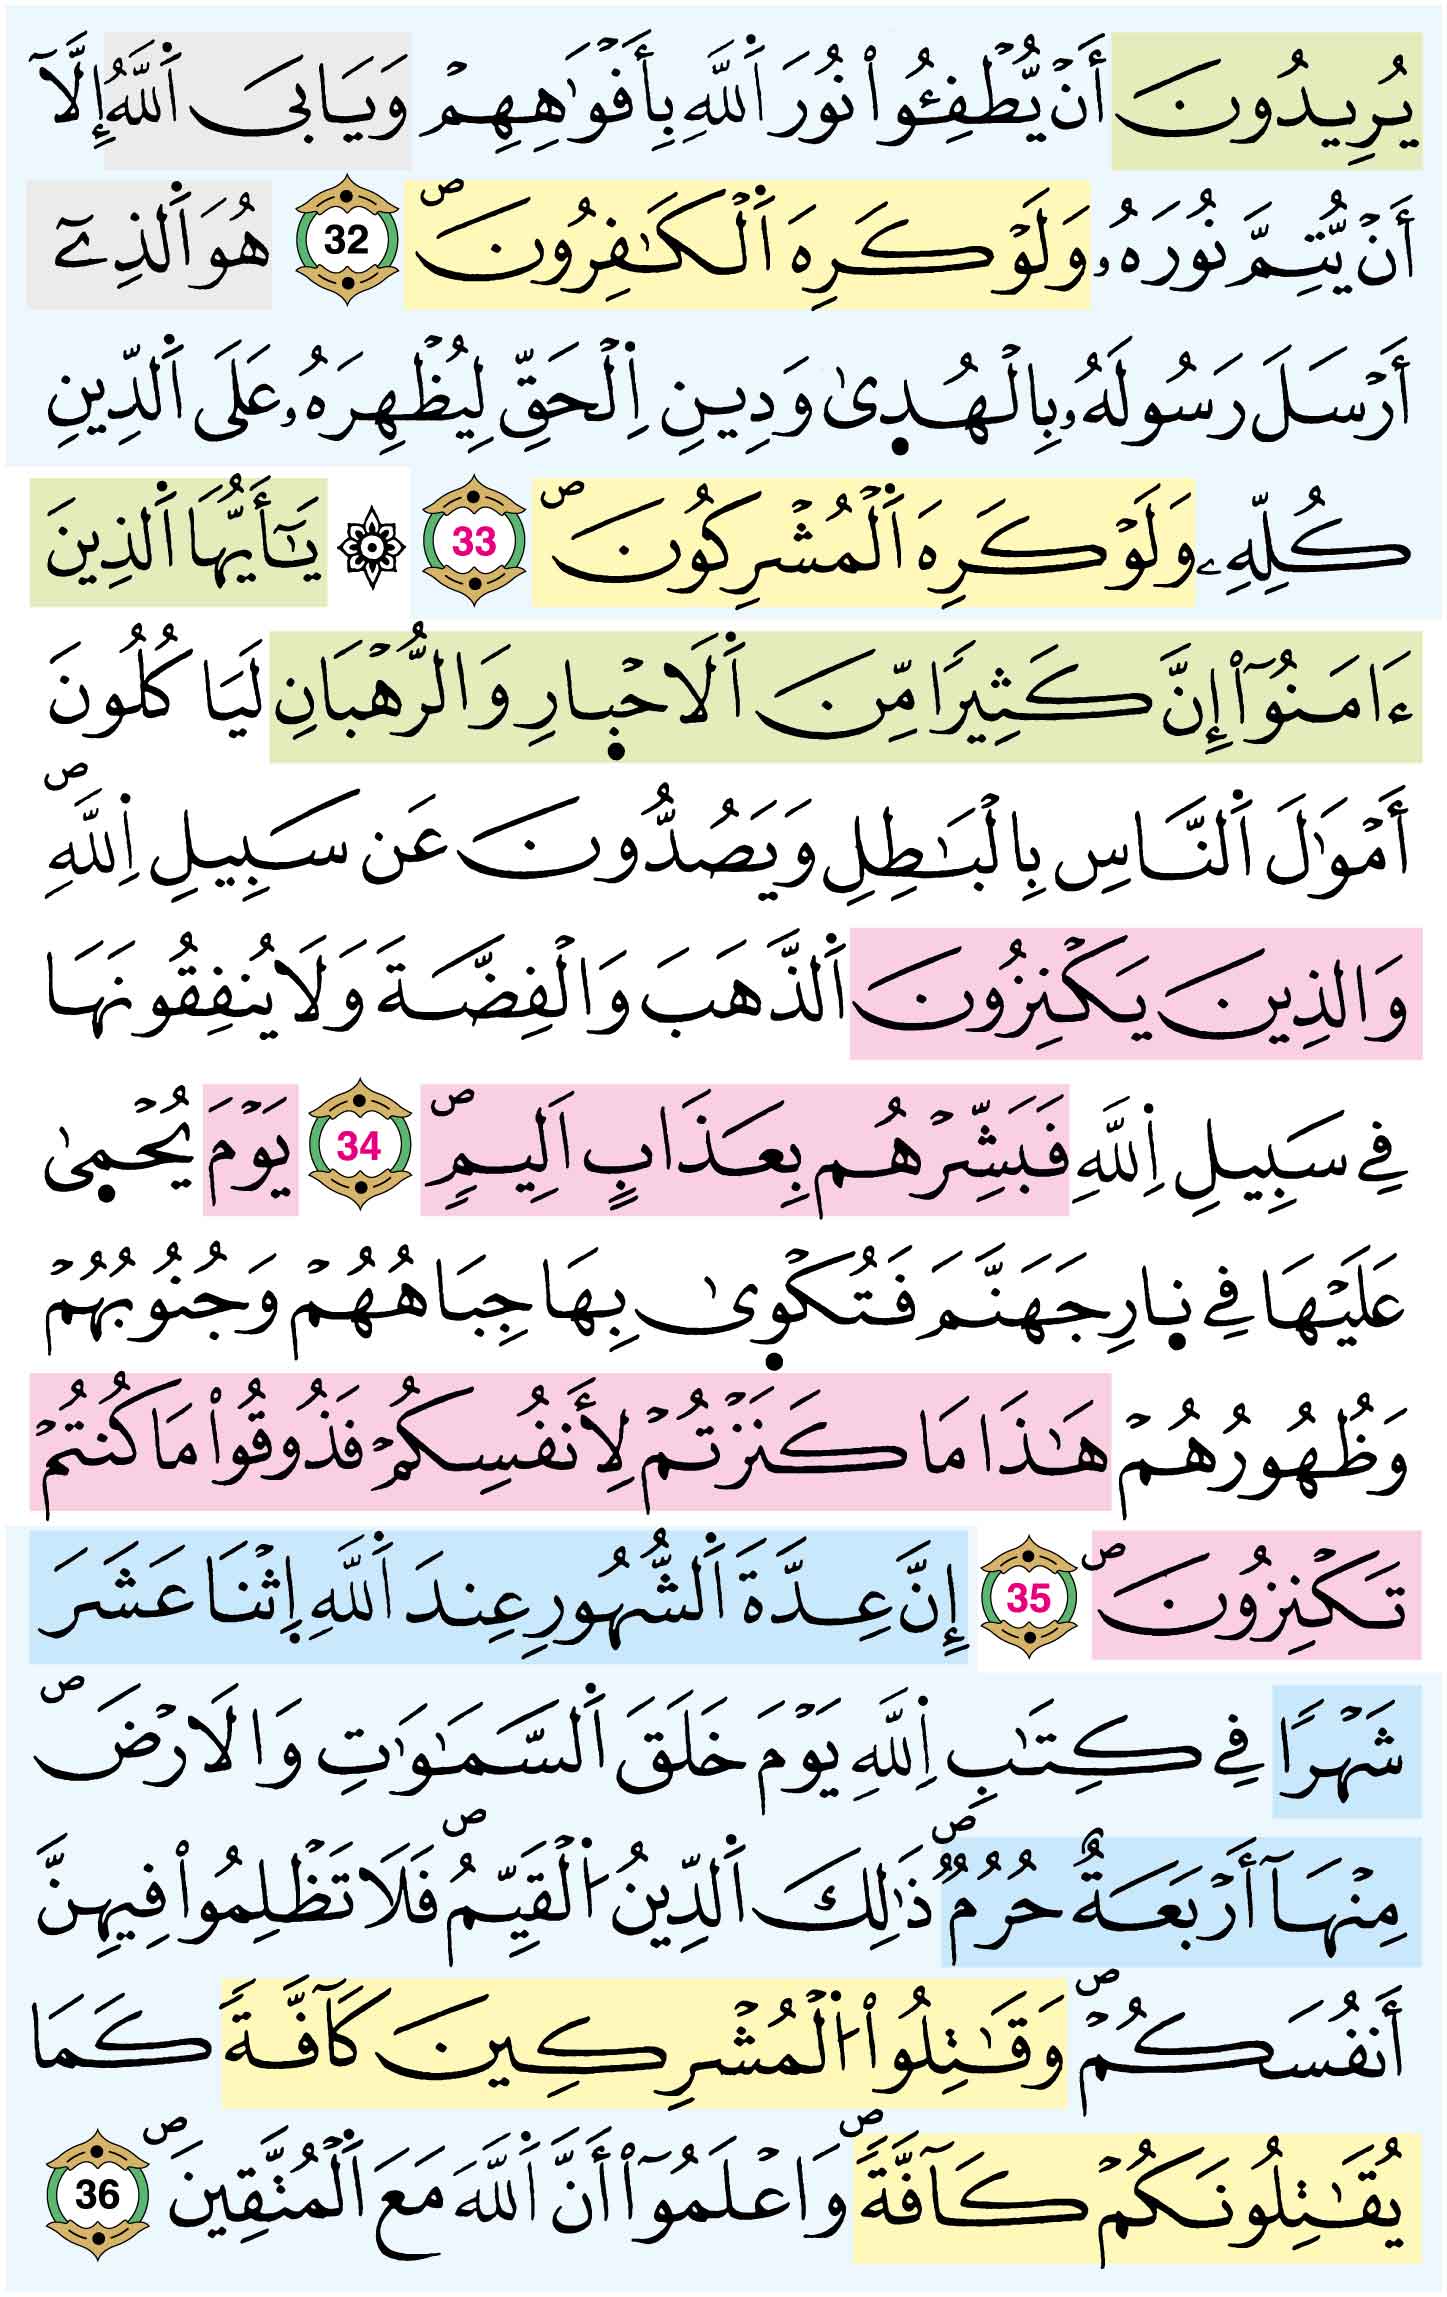 يُرِيدُونَ أَنْ يُّطْفِـُٔواْ نُورَ اَ۬للَّهِ بِأَفْوَٰهِهِمْ وَيَابَى اَ۬للَّهُ إِلَّآ
أَنْ يُّتِمَّ نُورَهُۥ وَلَوْ كَرِهَ اَ۬لْكَٰفِرُونَۖ 32 هُوَ اَ۬لذِےٓ
أَرْسَلَ رَسُولَهُۥ بِالْهُد۪ىٰ وَدِينِ اِ۬لْحَقِّ لِيُظْهِرَهُۥ عَلَى اَ۬لدِّينِ
كُلِّهِۦ وَلَوْ كَرِهَ اَ۬لْمُشْرِكُونَۖ 33 ۞ يَٰٓأَيُّهَا اَ۬لذِينَ
ءَامَنُوٓاْ إِنَّ كَثِيرًا مِّنَ اَ۬لَاحْب۪ارِ وَالرُّهْبَانِ لَيَاكُلُونَ
أَمْوَٰلَ اَ۬لنَّاسِ بِالْبَٰطِلِ وَيَصُدُّونَ عَن سَبِيلِ اِ۬للَّهِۖ
وَالذِينَ يَكْنِزُونَ اَ۬لذَّهَبَ وَالْفِضَّةَ وَلَا يُنفِقُونَهَا
فِے سَبِيلِ اِ۬للَّهِ فَبَشِّرْهُم بِعَذَابٍ اَلِيمٖۖ 34 يَوْمَ يُحْم۪ىٰ
عَلَيْهَا فِے ن۪ارِ جَهَنَّمَ فَتُكْو۪ىٰ بِهَا جِبَاهُهُمْ وَجُنُوبُهُمْ
وَظُهُورُهُمْ هَٰذَا مَا كَنَزْتُمْ لِأَنفُسِكُمْ فَذُوقُواْ مَا كُنتُمْ
تَكْنِزُونَۖ 35 إِنَّ عِدَّةَ اَ۬لشُّهُورِ عِندَ اَ۬للَّهِ اِ۪ثْنَا عَشَرَ
شَهْرًا فِے كِتَٰبِ اِ۬للَّهِ يَوْمَ خَلَقَ اَ۬لسَّمَٰوَٰتِ وَالَارْضَۖ
مِنْهَآ أَرْبَعَةٌ حُرُمٞۖ ذَٰلِكَ اَ۬لدِّينُ اُ۬لْقَيِّمُۖ فَلَا تَظْلِمُواْ فِيهِنَّ
أَنفُسَكُمْۖ وَقَٰتِلُواْ اُ۬لْمُشْرِكِينَ كَآفَّةٗ كَمَا
يُقَٰتِلُونَكُمْ كَآفَّةٗۖ وَاعْلَمُوٓاْ أَنَّ اَ۬للَّهَ مَعَ اَ۬لْمُتَّقِينَۖ 36